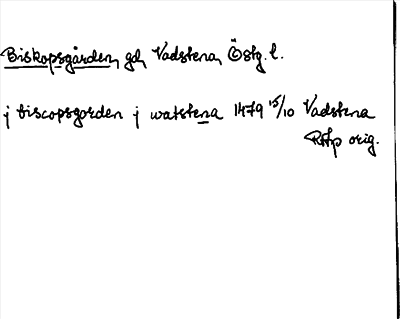 Biskopsgården, gd, Vadstena, Östg. l.
j biscopsgorden j watstena 1479 15/10 Vadstena
RAp orig.